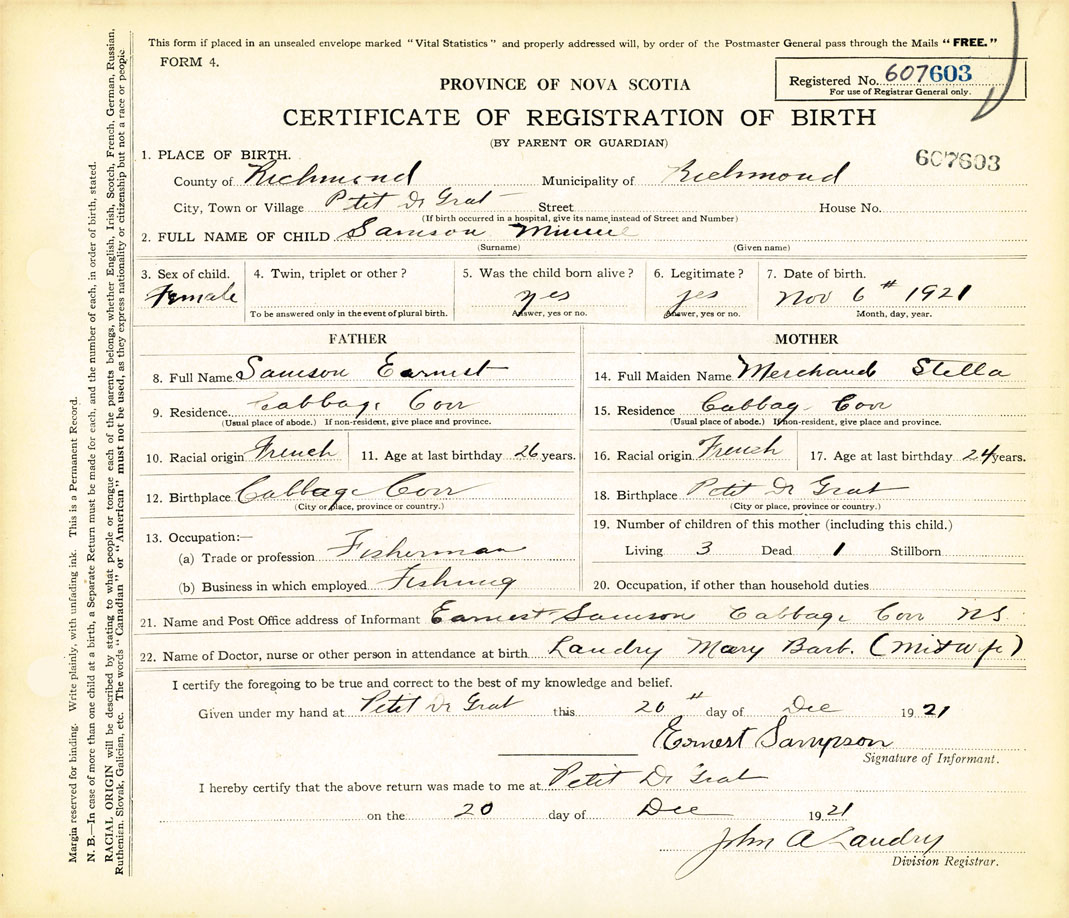 This form if placed in an unsealed envelope marked "Vital Statistics" and properly addressed will, by order of the Postmaster General pass through the Mails "FREE."
FORM 4.
PROVINCE OF NOVA SCOTIA
Registered No. 607603
For use of Registrar General only.
CERTIFICATE OF REGISTRATION OF BIRTH
(BY PARENT OR GUARDIAN)
607603
1. PLACE OF BIRTH.
County of Richmond Municipality of Richmond
City, Town or Village Petit De Grat Street House No.
(If birth occurred in a hospital, give its name instead of Street and Number)
2. FULL NAME OF CHILD Samson Minnie
(Surname) (Given name)
3. Sex of child. 4. Twin, triplet or other? 5. Was the child born alive? 6. Legitimate? 7. Date of birth.
Female yes yes Nov 6th 1921
To be answered only in the event of plural birth. Answer, yes or no. Answer, yes or no. Month, day, year.
FATHER
8. Full Name Samson Earnest
9. Residence Cabbage Cov
(Usual place of abode.) If non-resident, give place and province.
10. Racial origin French 11. Age at last birthday 26 years.
12. Birthplace Cabbage Cov
(City or place, province or country.)
13. Occupation:—
(a) Trade or profession Fisherman
(b) Business in which employed Fishing
MOTHER
14. Full Maiden Name Merchand Stella
15. Residence Cabbag Cov
(Usual place of abode.) If non-resident, give place and province.
16. Racial origin French 17. Age at last birthday 24 years.
18. Birthplace Petit De Grat
(City or place, province or country.)
19. Number of children of this mother (including this child.)
Living 3 Dead 1 Stillborn
20. Occupation, if other than household duties
21. Name and Post Office address of Informant Earnest Samson Cabbage Cov NS
22. Name of Doctor, nurse or other person in attendance at birth Landry Mary Barb. (Midwife)
I certify the foregoing to be true and correct to the best of my knowledge and belief.
Given under my hand at Petit De Grat this 20th day of Dec 1921
Ernest Sampson
Signature of Informant.
I hereby certify that the above return was made to me at Petit De Grat
on the 20 day of Dec 1921
John A Landry
Division Registrar.
Margin reserved for binding. Write plainly, with unfading ink. This is a Permanent Record.
N. B.—In case of more than one child at a birth, a Separate Return must be made for each, and the number of each, in order of birth, stated.
RACIAL ORIGIN will be described by stating to what people or tongue each of the parents belongs, whether English, Irish, Scotch, French, German, Russian,
Ruthenian, Slovak, Galician, etc. The words "Canadian" or "American" must not be used, as they express nationality or citizenship but not a race or people